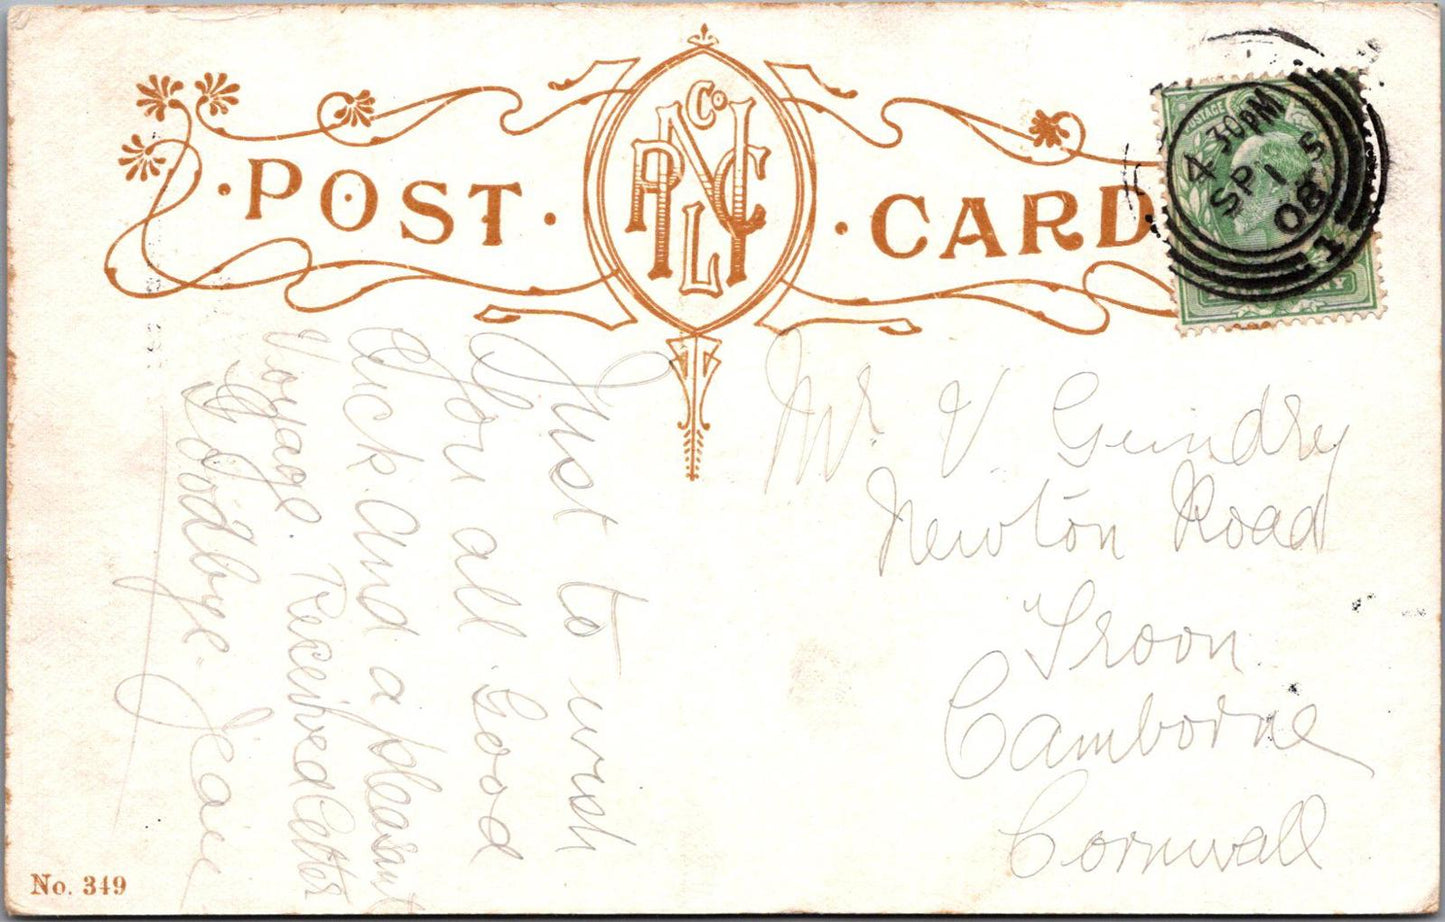 POST CARD
PNLYC Co
POSTAGE
4 30 PM
SP 15
08
51
Mr V Gundry
Newton Road
Troon.
Camborne
Cornwall
Just to wish
You all Good
Luck and a pleasant
Voyage. Received Letter
Goodbye.
Jean
No. 349